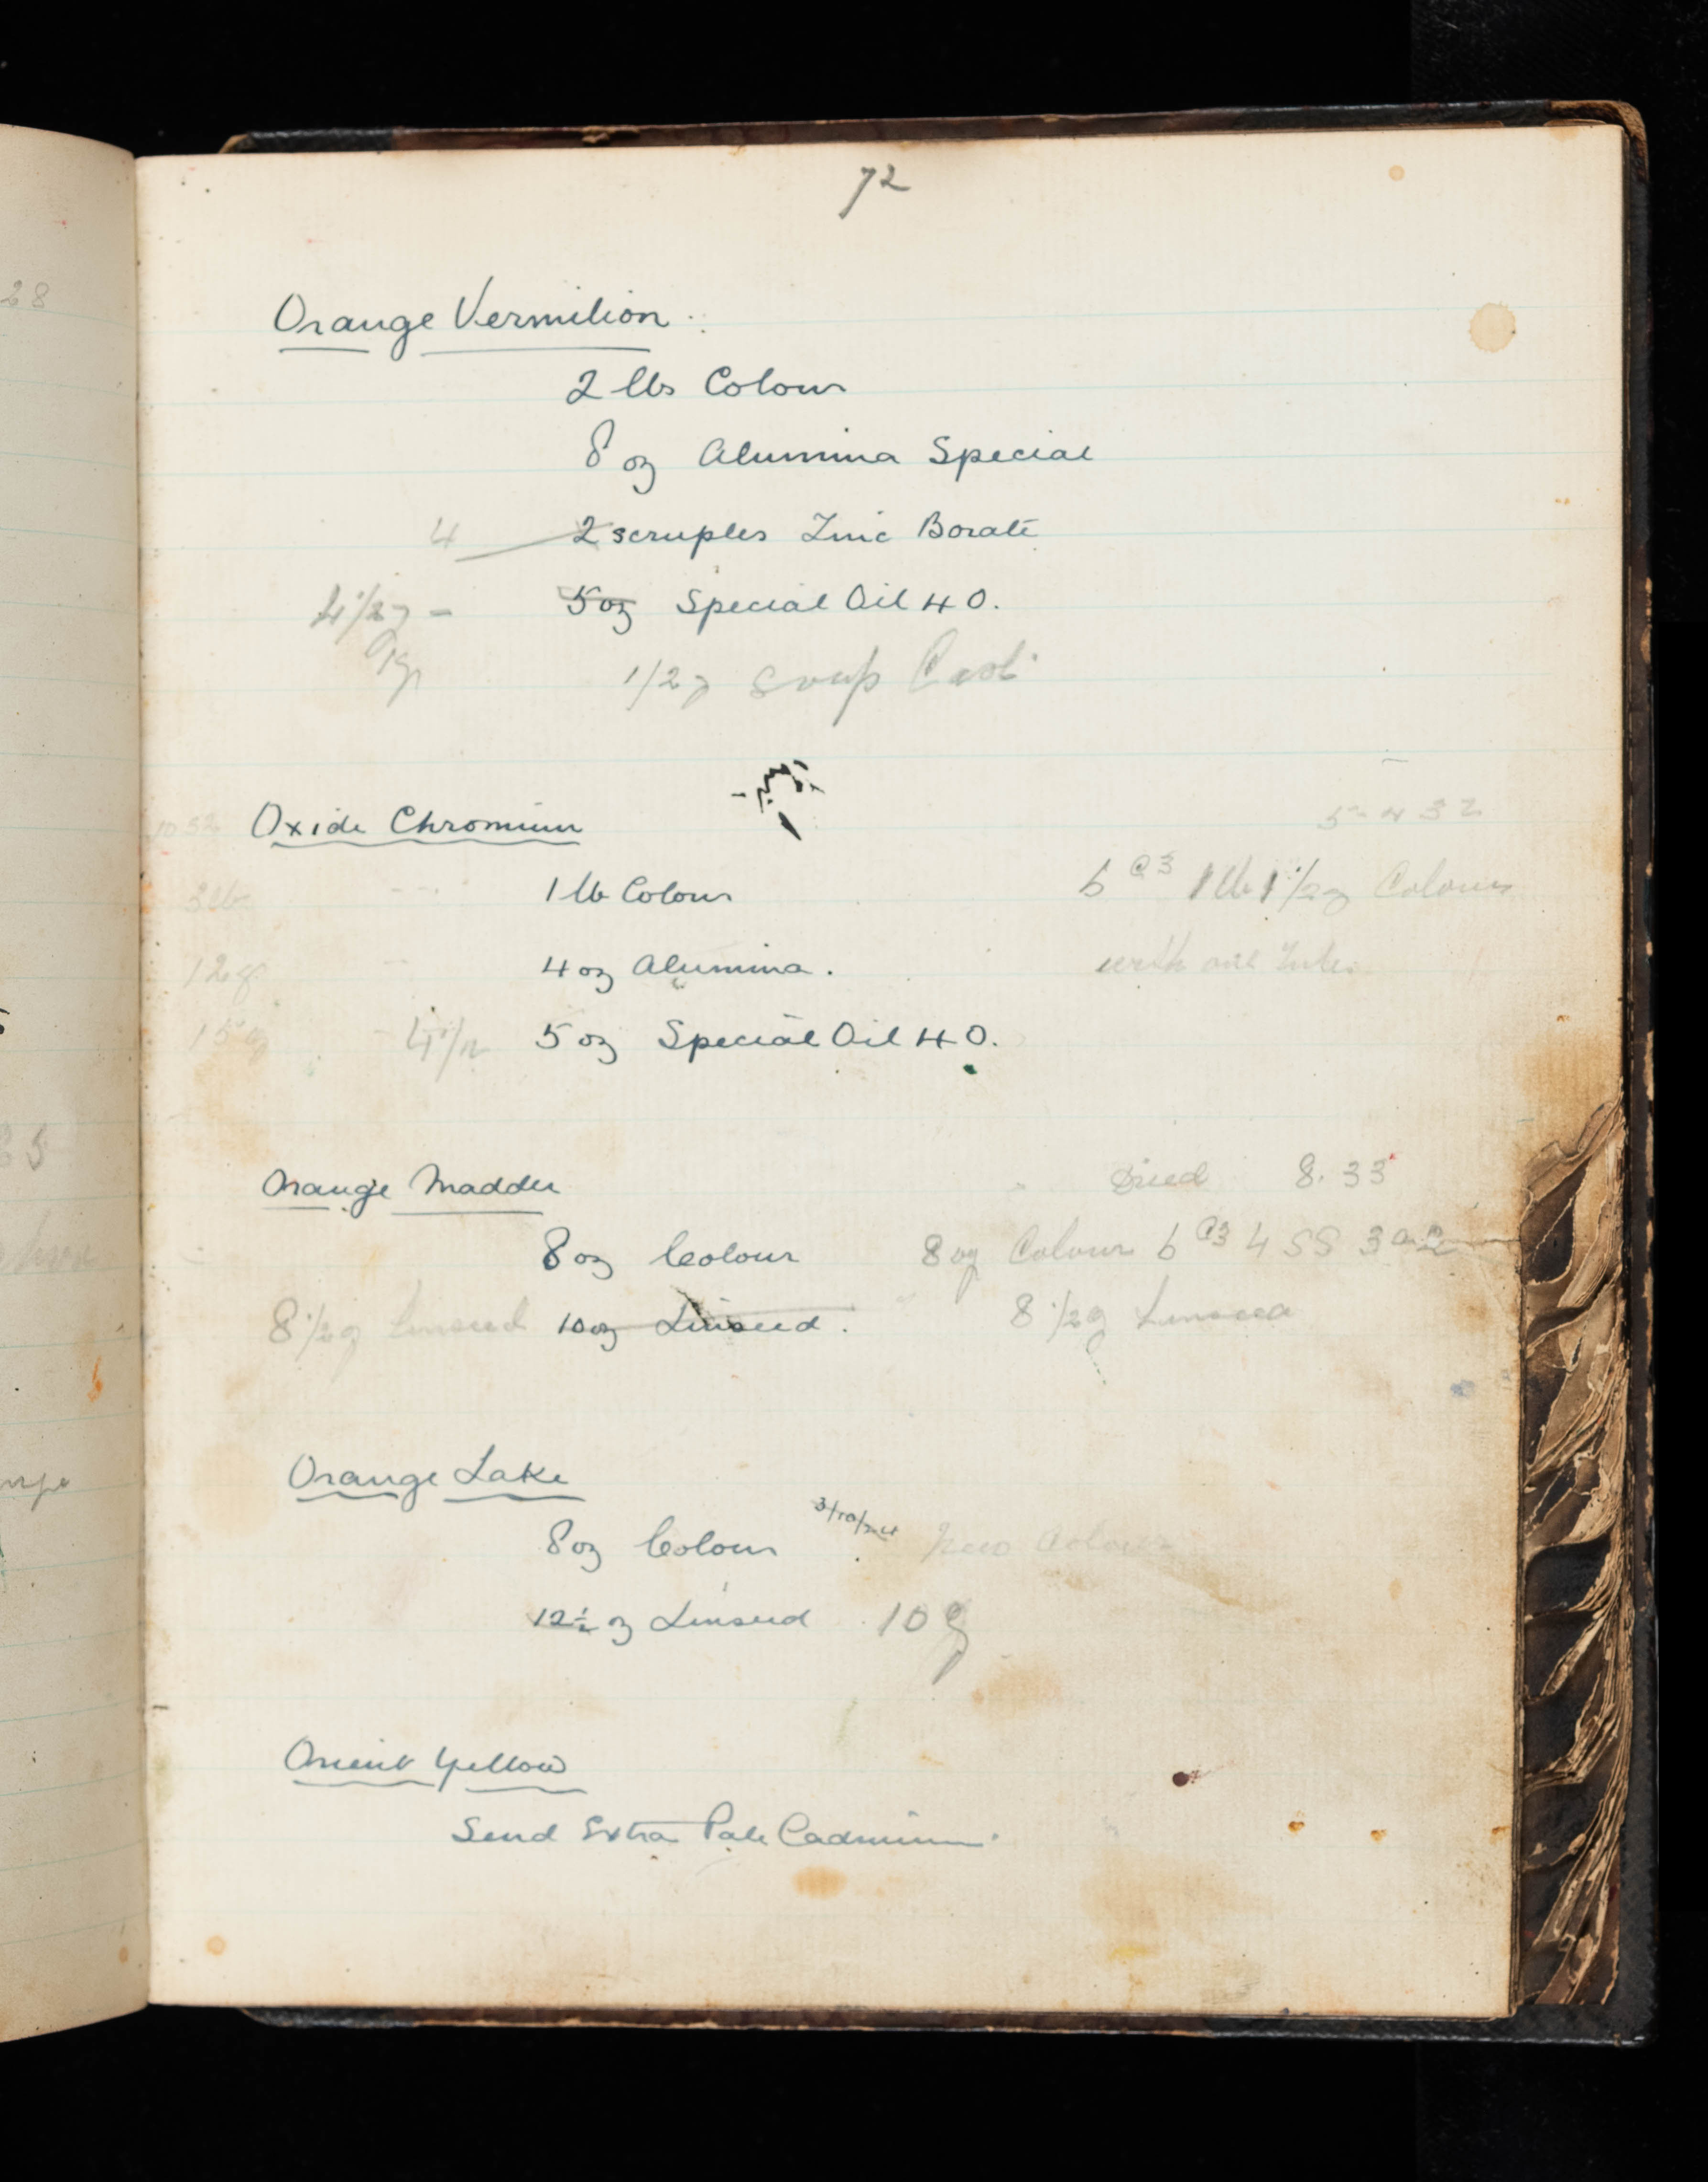 72
Orange Vermilion
2 lbs Colour
8 oz Alumina Special
4 2 scruples Zinc Borate
4 1/2 - 5 oz Special Oil 40.
1/2
Oxide Chromium
5 4 32
1 lb Colour 6 @ 3 1 lb 1 1/2 oz Colour
3 lb
12 oz 4 oz Alumina. with
15 oz 4 1/2 5 oz Special Oil 40.
Orange Madder 8.33
8 oz Colour 8 oz Colour 6 @3 4 SS 3
8 1/2 oz Linseed 10 oz Linseed. 8 1/2 oz Linseed
Orange Lake
8 oz Colour 3/10/24 New Colour
12 1/2 oz Linseed 10 oz
Orient Yellow
Send Extra Pale Cadmium.
28